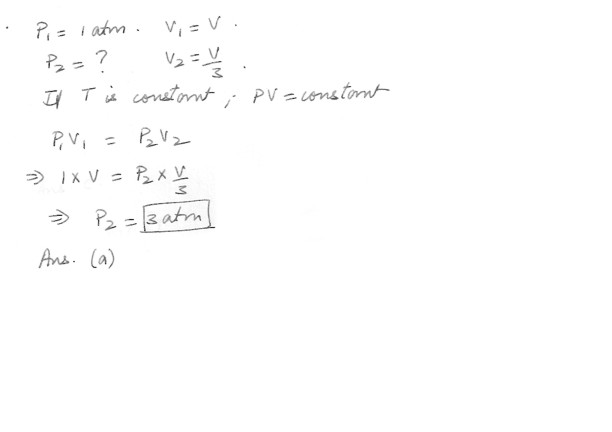 P₁ = 1 atm. V₁ = V.
P₂ = ? V₂ = V/3.
If T is constant, PV = constant
P₁V₁ = P₂V₂
⇒ 1 × V = P₂ × V/3
⇒ P₂ = 3 atm
Ans. (a)